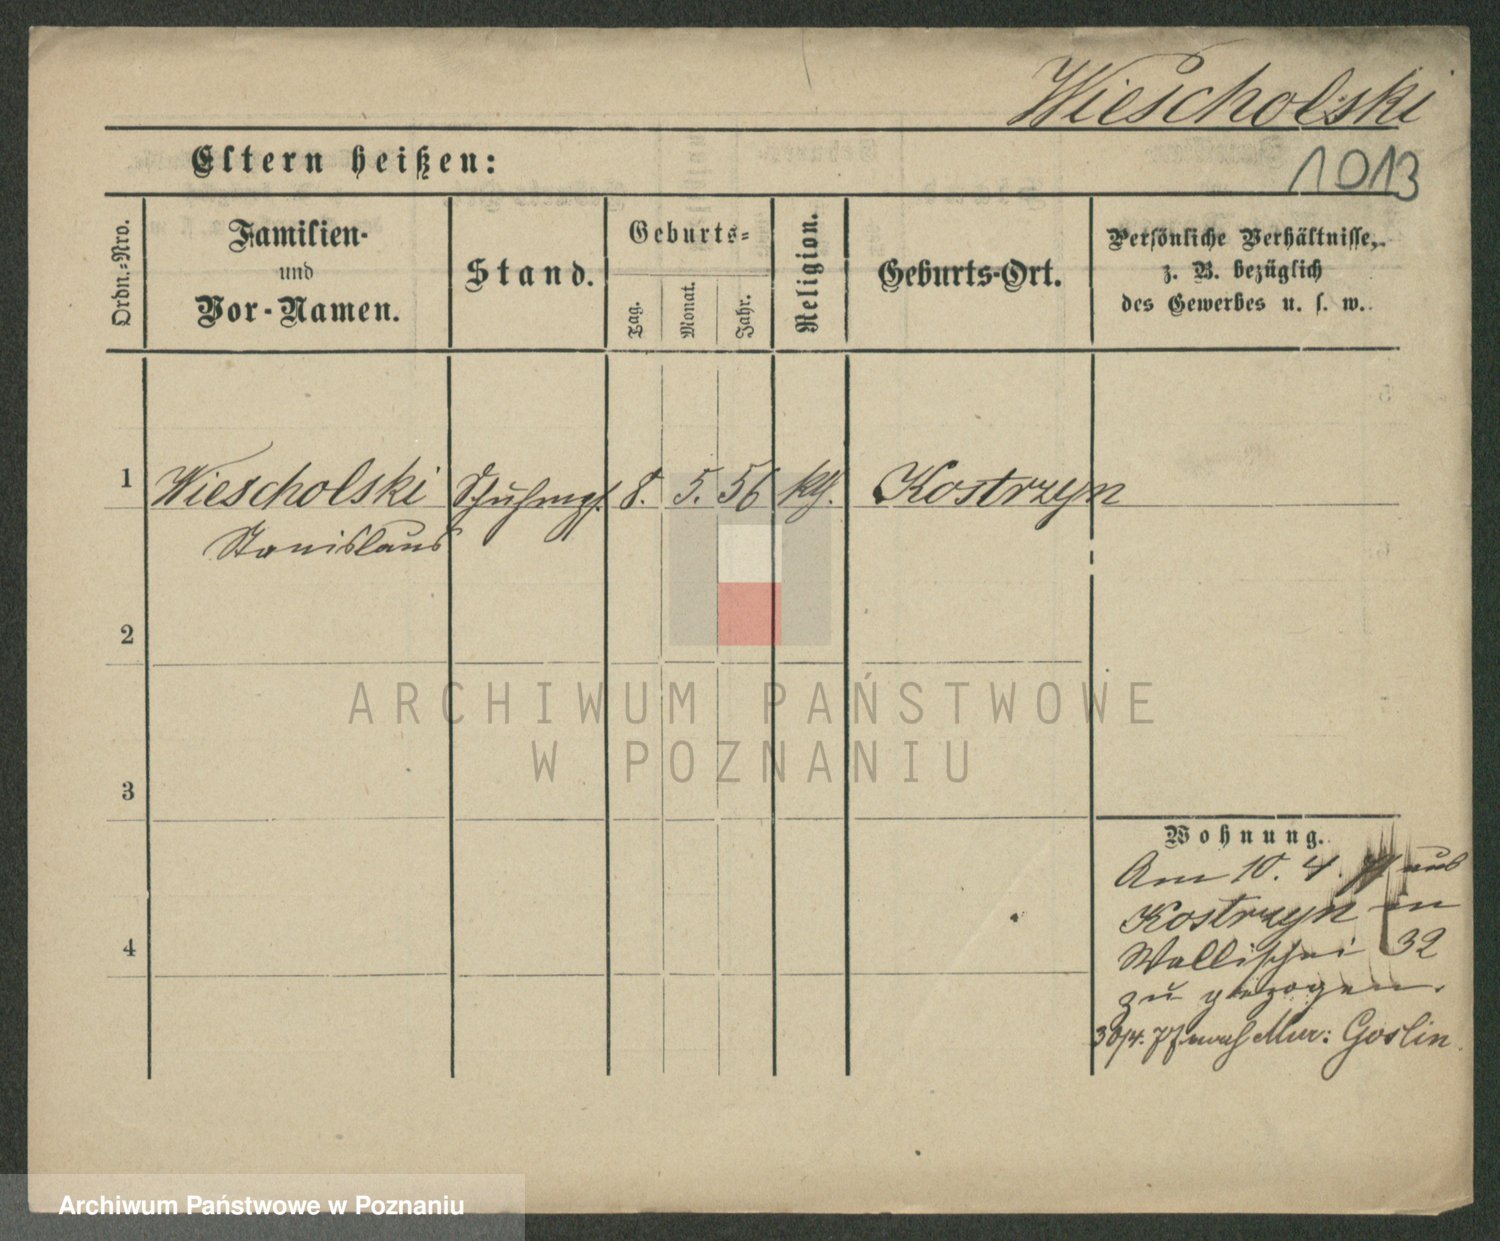 Wiescholski
Eltern heißen:
1013
Ordn.-Nro.
Familien-
und
Vor-Namen.
Stand.
Geburts-
Tag.
Monat.
Jahr.
Religion.
Geburts-Ort.
Persönliche Verhältnisse,
z. B. bezüglich
des Gewerbes u. s. w.
1
Wiescholski
Stanislaus
Schuhmgs.
8.
5.
56
kth.
Kostrzyn
2
3
4
Wohnung.
Am 10. 4. aus
Kostrzyn in
Wallischei 32
zu gezogen.
30/4. 77 nach Mur: Goslin
ARCHIWUM PAŃSTWOWE
W POZNANIU
Archiwum Państwowe w Poznaniu